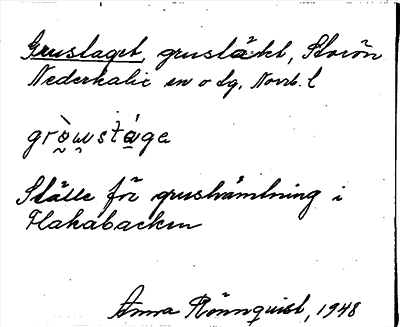 Grustaget, grustäkt, Storön
Nederkalix sn o tg, Norrb. l
gròu̯stáge
Ställe för grushämtning i
Flakabacken
Anna Rönnquist, 1948